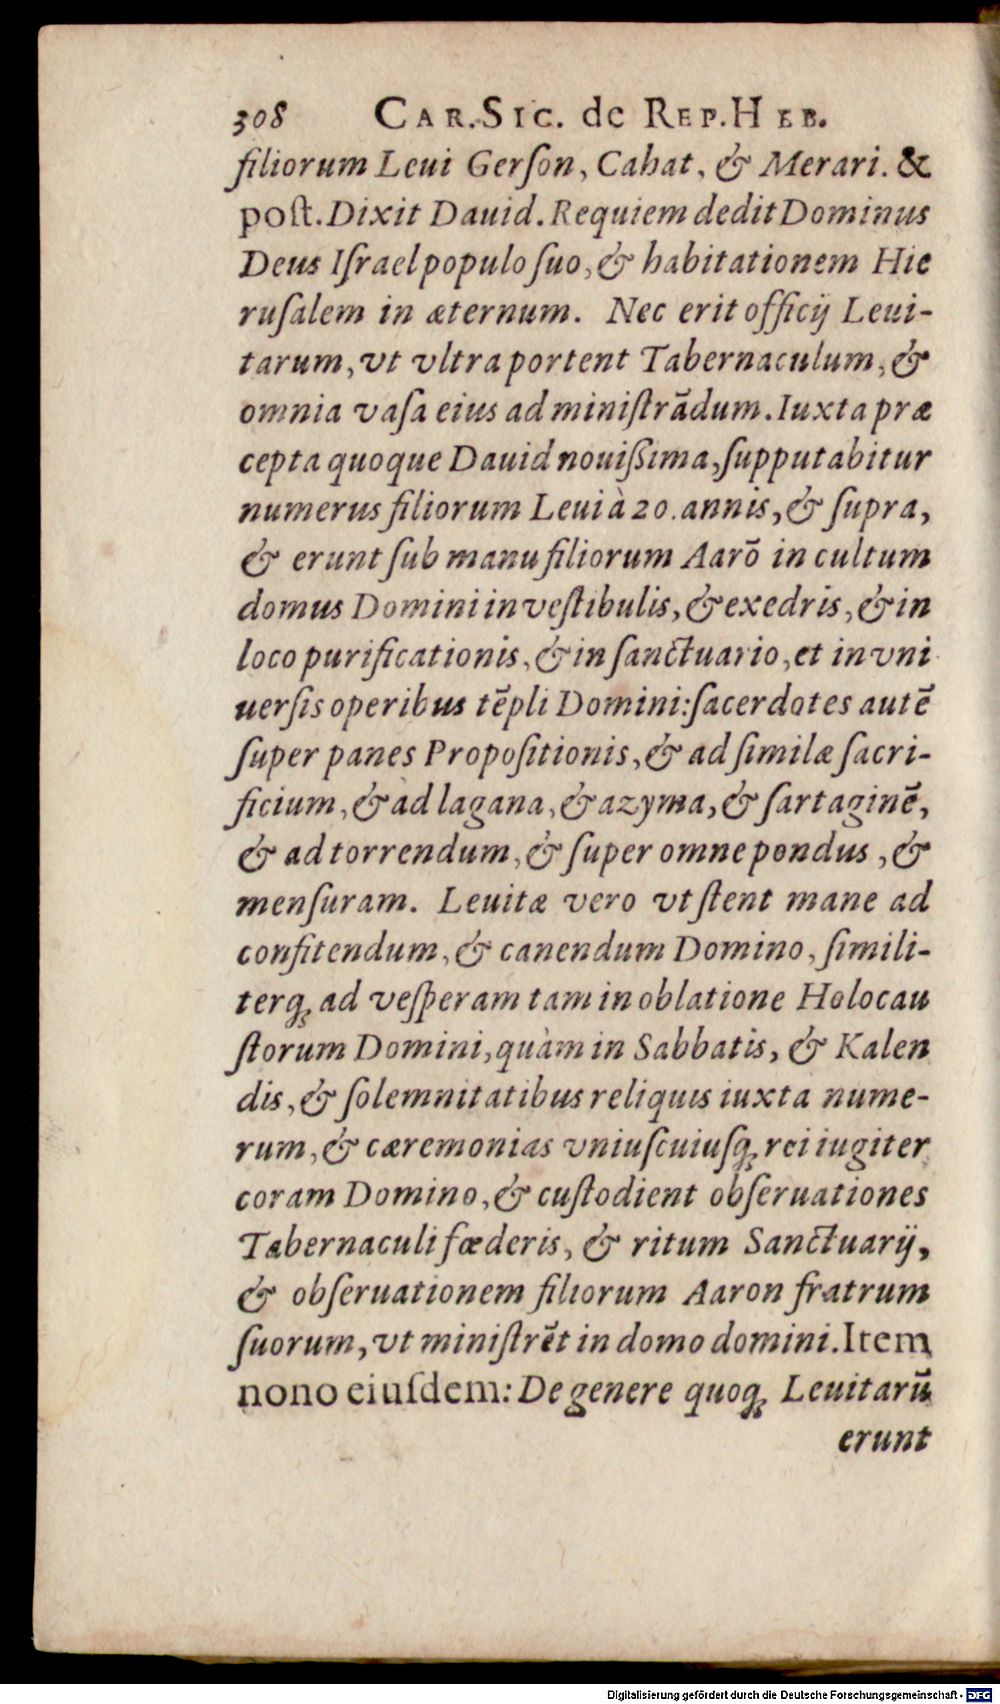 308 CAR. SIC. de REP. HEB.
filiorum Leui Gerſon, Cahat, & Merari. &
poſt. Dixit Dauid. Requiem dedit Dominus
Deus Iſrael populo ſuo, & habitationem Hie
ruſalem in æternum. Nec erit officij Leui-
tarum, vt vltra portent Tabernaculum, &
omnia vaſa eius ad miniſtrādum. Iuxta præ
cepta quoque Dauid nouiſſima, ſupputabitur
numerus filiorum Leui à 20. annis, & ſupra,
& erunt ſub manu filiorum Aarō in cultum
domus Domini in veſtibulis, & exedris, & in
loco purificationis, & in ſanctuario, et in vni
uerſis operibus tēpli Domini: ſacerdotes autē
ſuper panes Propoſitionis, & ad ſimilæ ſacri-
ficium, & ad lagana, & azyma, & ſartaginē,
& ad torrendum, & ſuper omne pondus, &
menſuram. Leuitæ vero vt ſtent mane ad
confitendum, & canendum Domino, ſimili-
terq; ad veſperam tam in oblatione Holocau
ſtorum Domini, quàm in Sabbatis, & Kalen
dis, & ſolemnitatibus reliquis iuxta nume-
rum, & cæremonias vniuſcuiuſq; rei iugiter
coram Domino, & cuſtodient obſeruationes
Tabernaculi fœderis, & ritum Sanctuarij,
& obſeruationem filiorum Aaron fratrum
ſuorum, vt miniſtrēt in domo domini. Item
nono eiuſdem: De genere quoq; Leuitarū
erunt
Digitalisierung gefördert durch die Deutsche Forschungsgemeinschaft - DFG